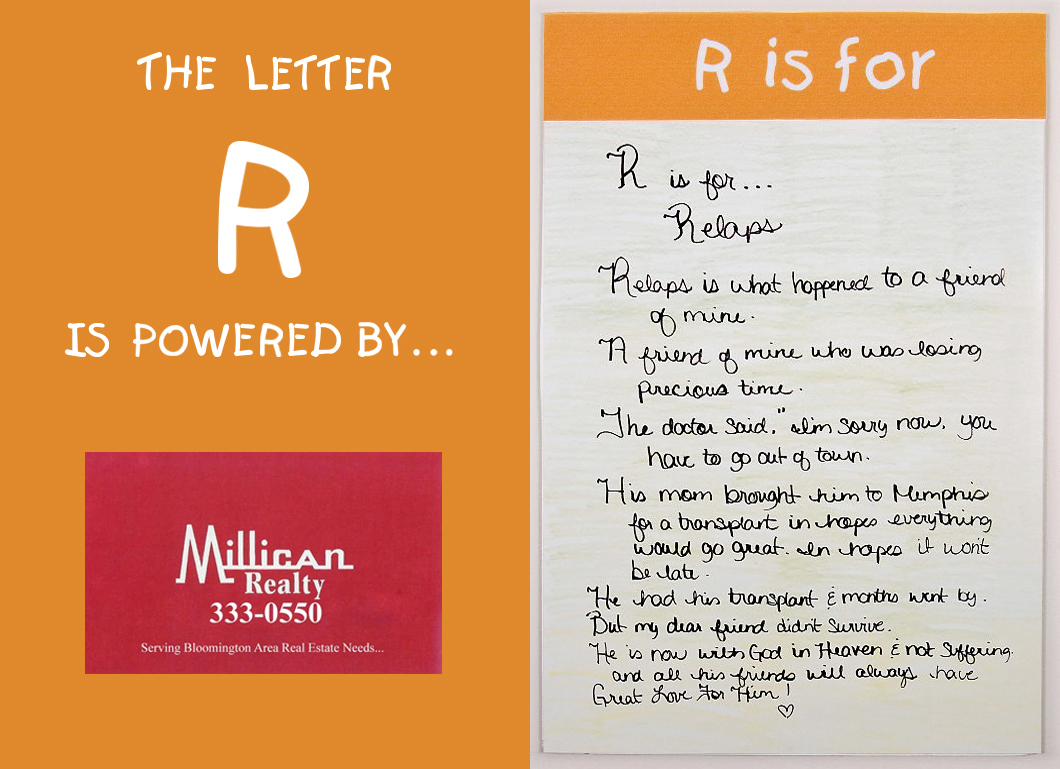 THE LETTER
R
IS POWERED BY...
Millican
Realty
333-0550
Serving Bloomington Area Real Estate Needs...
R is for
R is for...
Relaps
Relaps is what happened to a friend
of mine.
A friend of mine who was losing
precious time.
The doctor said, "I'm sorry now, you
have to go out of town.
His mom brought him to Memphis
for a transplant in hopes everything
would go great. In hopes it won't
be late.
He had his transplant & months went by.
But my dear friend didn't survive.
He is now with God in Heaven & not suffering.
and all his friends will always have
Great Love For Him!